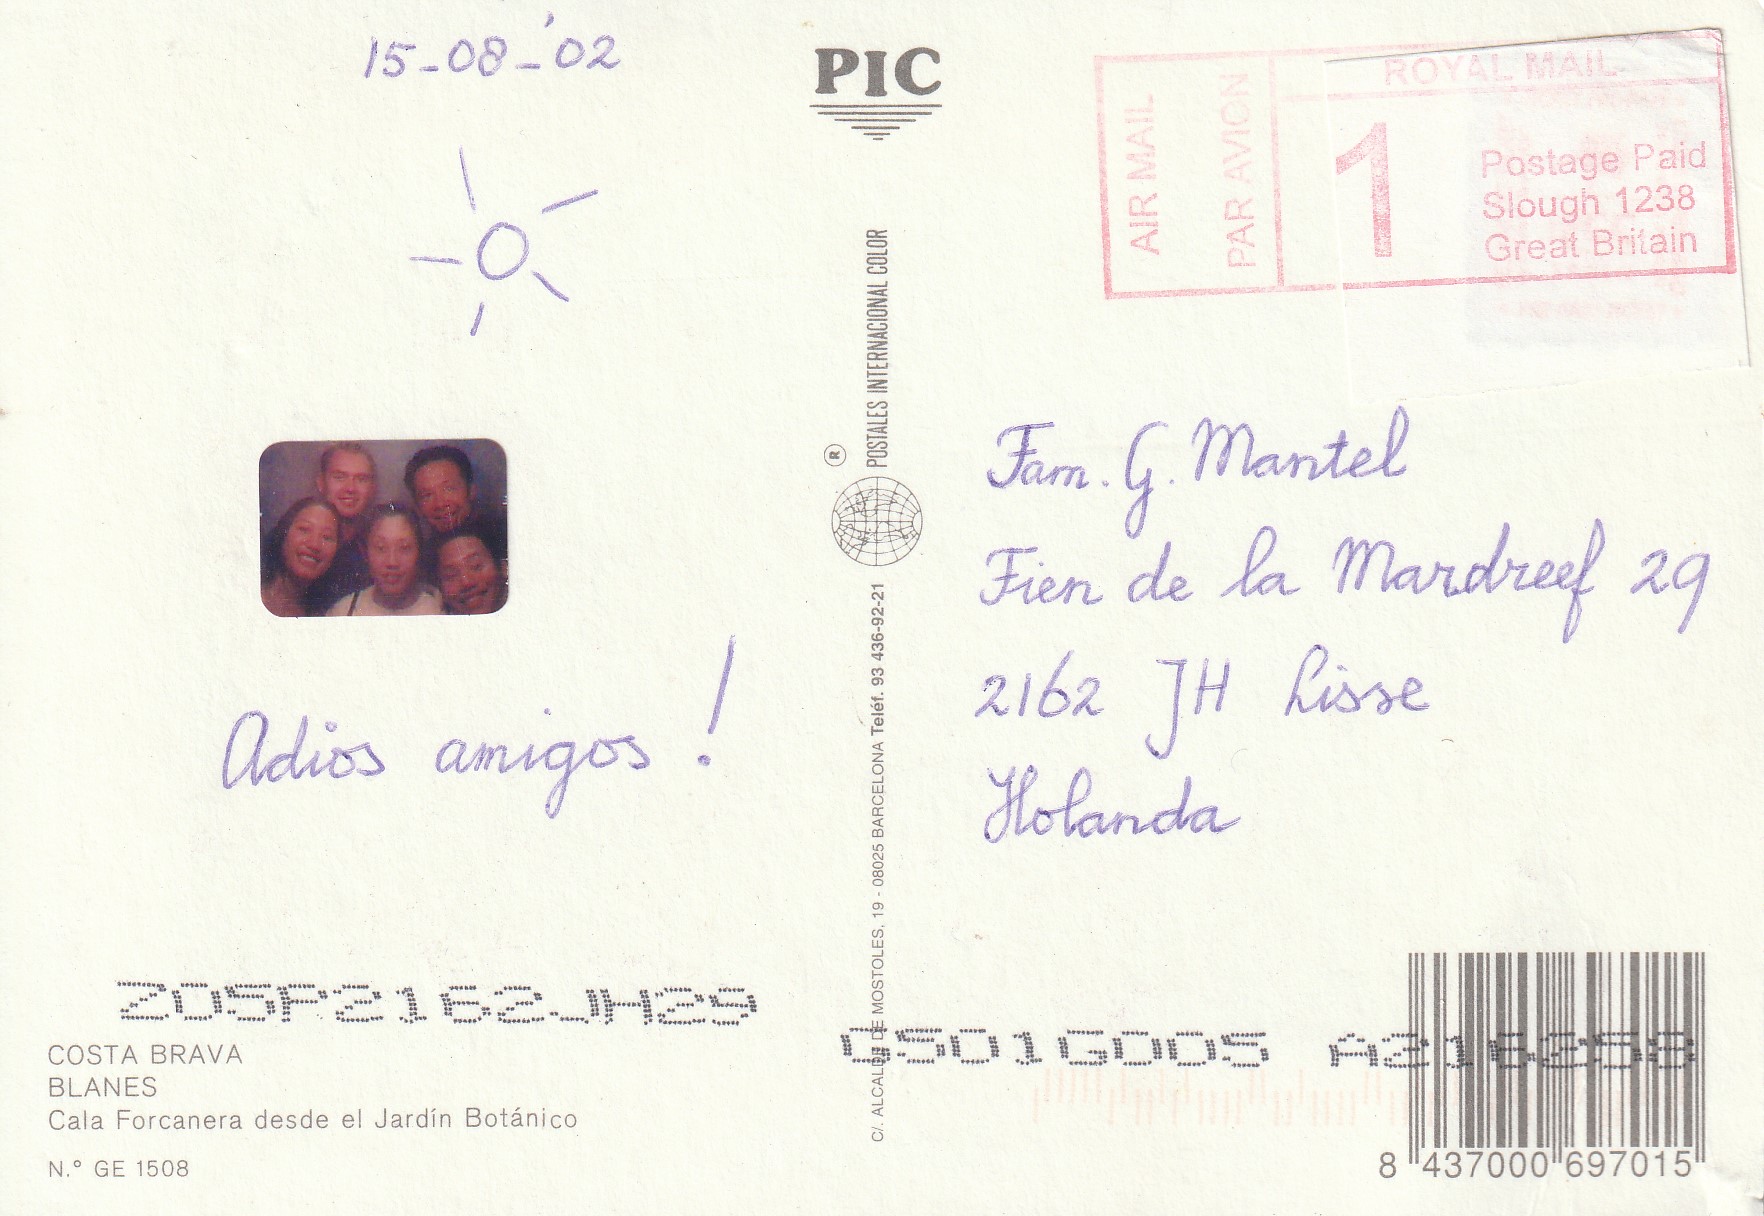 15-08-'02
PIC
AIR MAIL
PAR AVION
ROYAL MAIL
1
Postage Paid
Slough 1238
Great Britain
® POSTALES INTERNACIONAL COLOR
C/. ALCALDE DE MOSTOLES, 19 - 08025 BARCELONA Teléf. 93 436-92-21
Fam. G. Mantel
Fien de la Mardreef 29
2162 JH Lisse
Holanda
Adios amigos!
ZDSP2162JH29
COSTA BRAVA
BLANES
Cala Forcanera desde el Jardín Botánico
N.° GE 1508
A216258
8 437000 697015